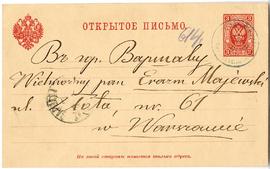 ОТКРЫТОЕ ПИСЬМО.
6/14
Въ гор. Варшаву
Wielmożny pan Erazm Majewski
ul. Złota, nr. 61
w Warszawie
На этой сторонѣ пишется только адресъ.